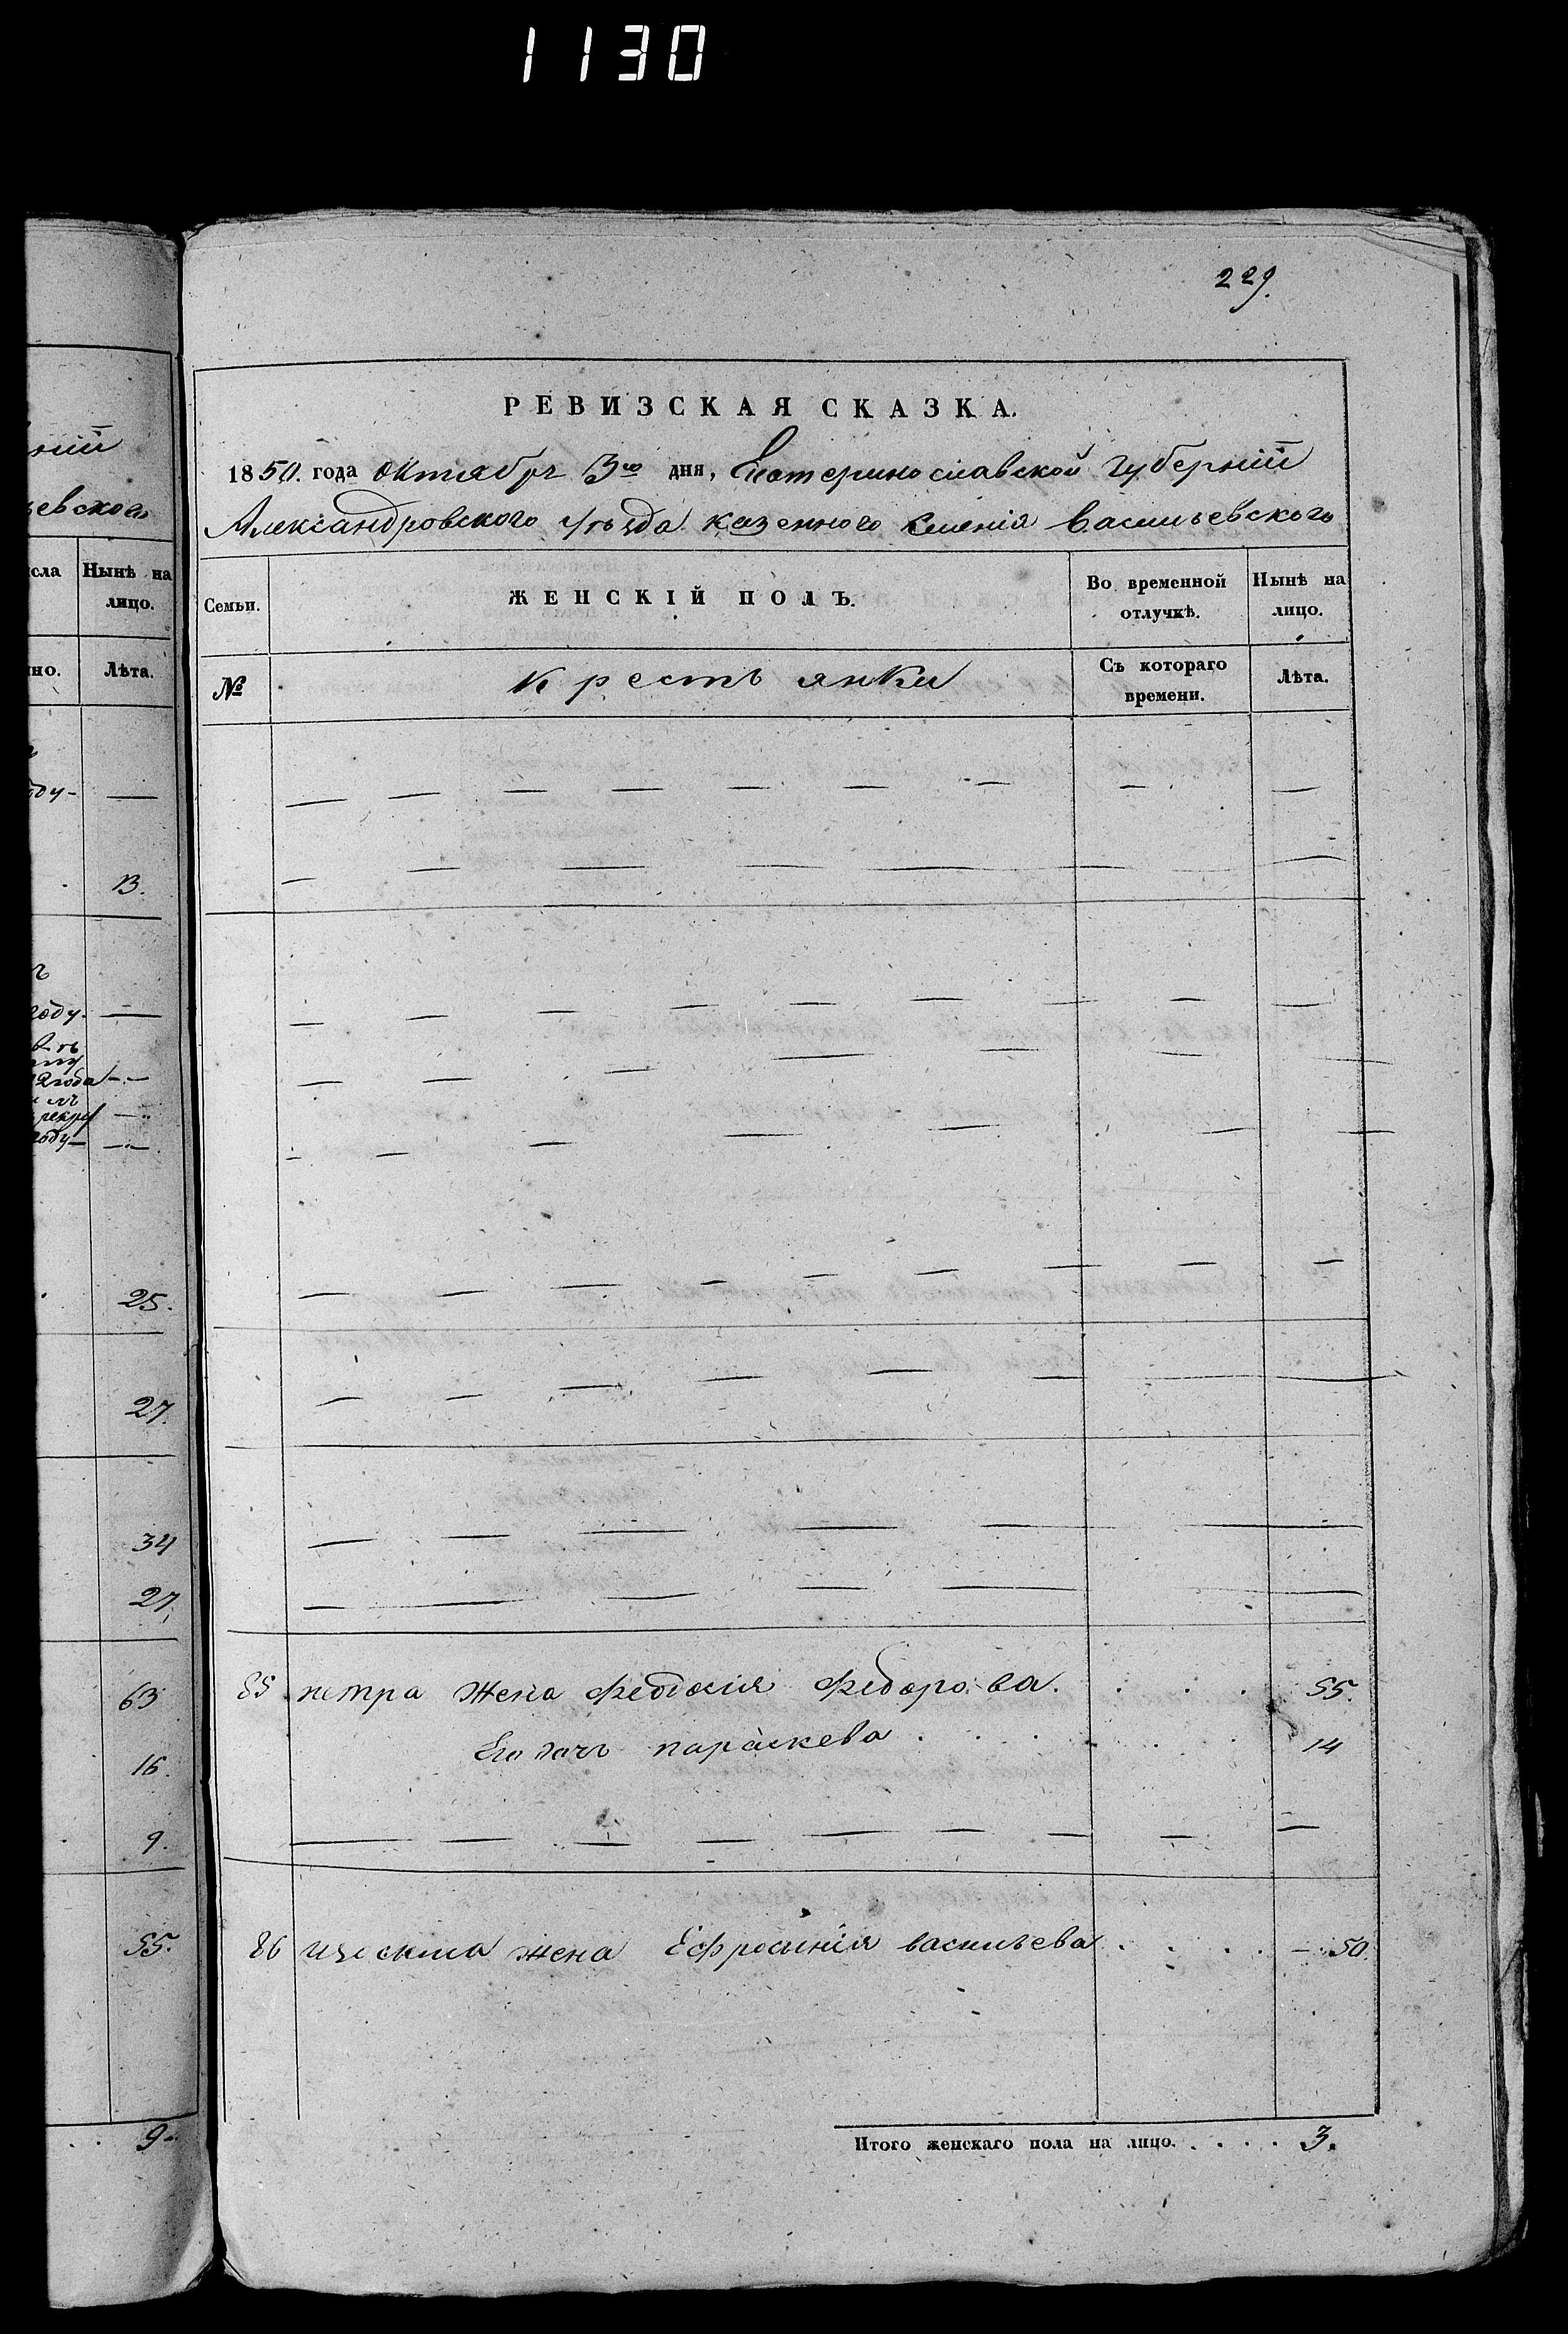 1130
229.
РЕВИЗСКАЯ СКАЗКА.
1850. года октября 3го дня, Екатеринославской губерніи
Александровского уѣзда казенного имѣнія Васильевского
Семьи.
ЖЕНСКІЙ ПОЛЪ.
Во временной отлучкѣ.
Нынѣ на лицо.
№
крестьянки
Съ котораго времени.
Лѣта.
85 петра жена Феодосія Федорова. 55.
Его дочь параскева 14
86 жена Ефросинія васильева 50.
Итого женскаго пола на лицо. 3.
евского
Нынѣ на
лицо.
Лѣта.
13.
году.
году
25.
27.
34
27.
63
16.
9.
55.
9.